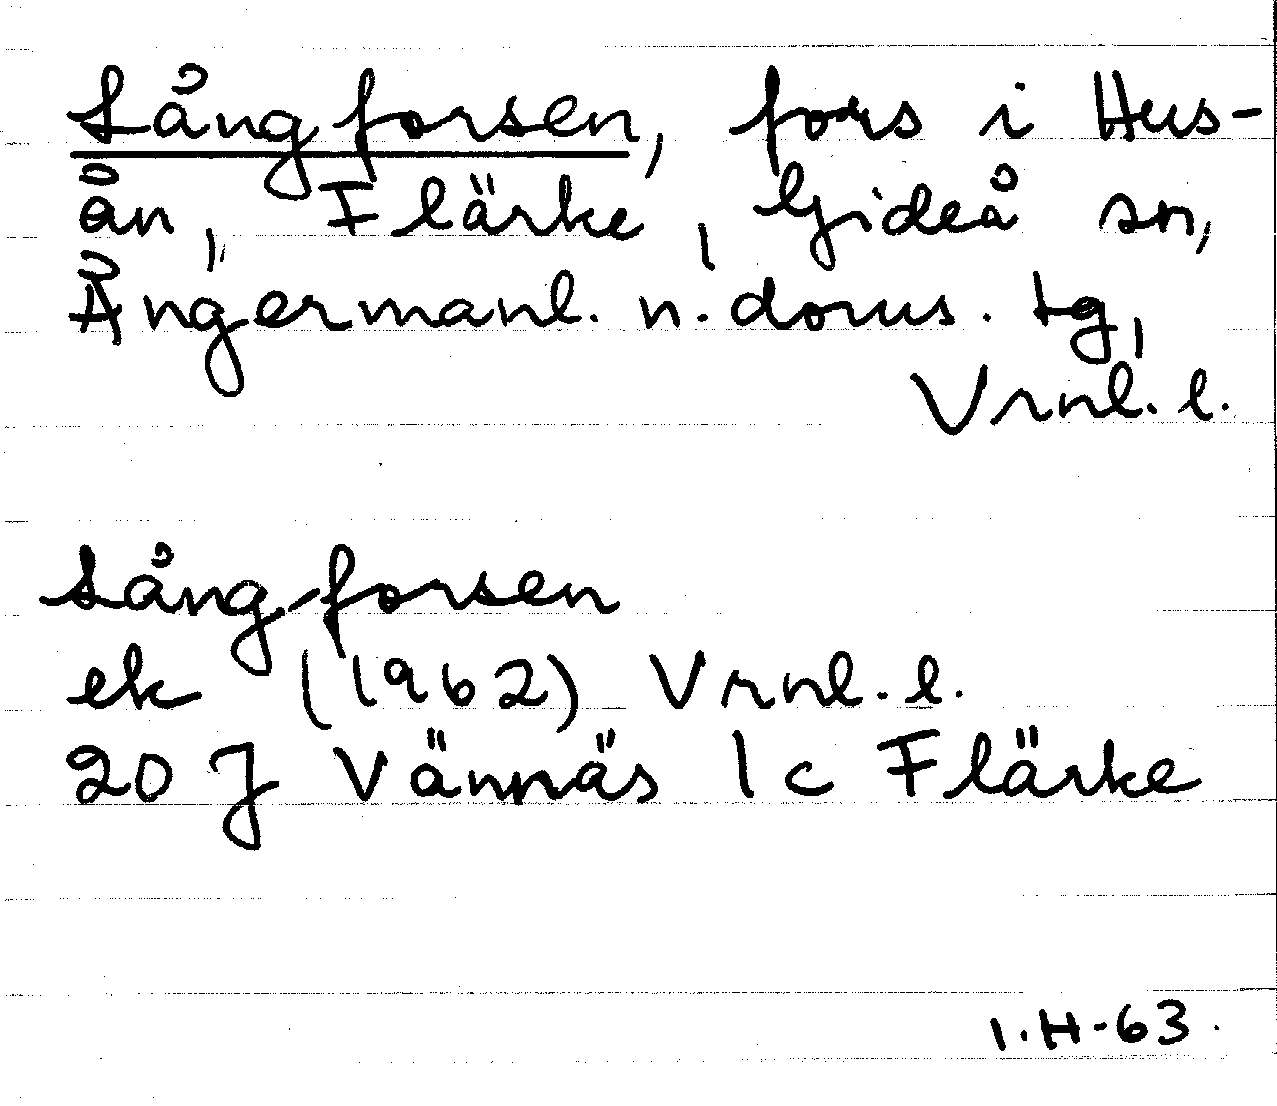 Sångforsen, fors i Hus-
ån, Flärke, Gideå sn,
Ångermanl. n. doms. tg,
Vrnl. l.
Sångforsen
ek (1962) Vrnl. l.
20 J Vännäs 1 c Flärke
I.H-63.